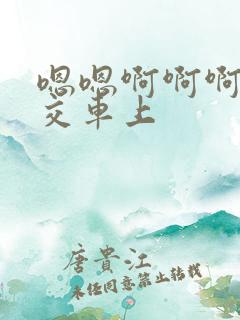 嗯嗯啊啊啊
交车上
唐贵江
未经同意禁止转载